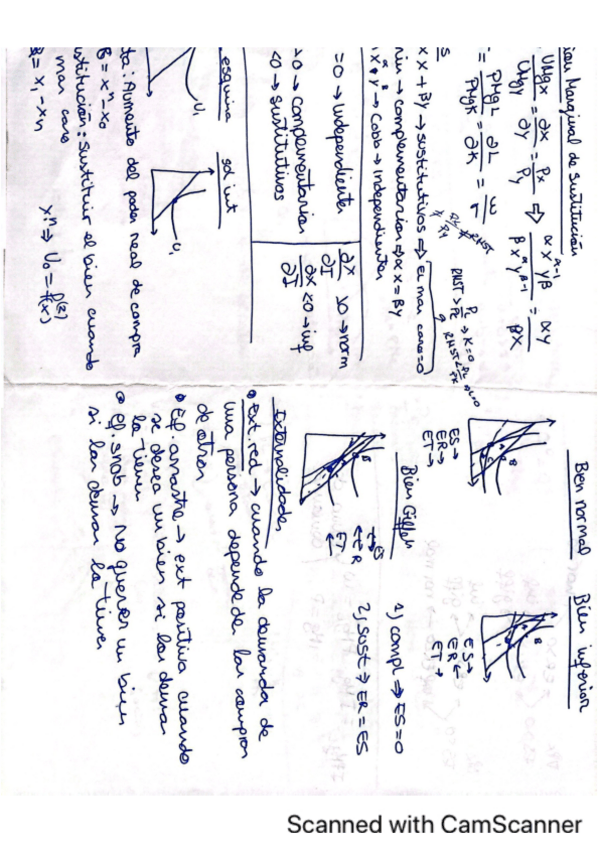 ión Marginal de Sustitución
UMgx/UMgy = ∂X/∂Y = Px/Py ⇒ αX^α-1 Y^β / βX^α Y^β-1 = αY/βX
= PMgL/PMgK = ∂L/∂K = w/r
≠ Px/Py ≠ RMST
RMST > Px/Py → X=0
XX + BY → sustitutivos ⇒ El mas caro=0
min → complementarios ⇒ αX = BY
X^α Y^β → Cobb → independientes
=0 → independiente
>0 → complementarios
<0 → sustitutivos
∂X/∂I >0 → norm
∂X/∂I <0 → inf
esquina
sol int
U1
U1
ta: Aumento del poder real de compra
B = x^n - x0
stitución: Sustituir el bien cuando
mas caro
B = x1 - xn
x^n ⇒ U0 =
Bien normal
ES→
ER→
ET→
Bien inferior
ES→
ER←
ET→
Bien Giffen
ES→
←ER
ET←
1) compl ⇒ ES=0
2) Sust ⇒ ER=ES
Externalidades
• ext. red → cuando la demanda de
una persona depende de las compras
de otros
• Ef. arrastre → ext positiva cuando
se desea un bien si los demas
lo tienen
• ef. snob → No querer un bien
si los demas lo tienen
Scanned with CamScanner